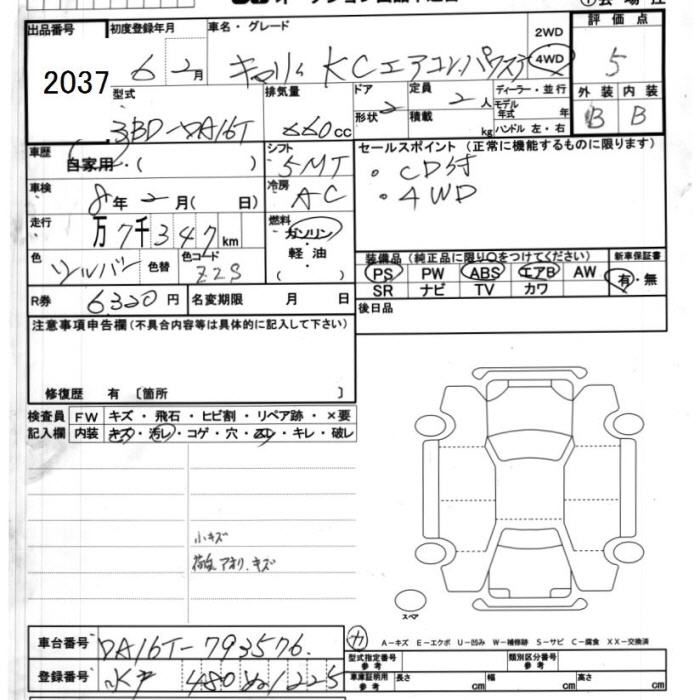 出品番号 初度登録年月 車名・グレード 評価点
2037 6 2月 キャリィ KCエアコン・パワステ 2WD 4WD 5
型式 排気量 ドア 定員 ディーラー・並行 外装 内装
3BD-DA16T 660cc 形状 2 積載 2人 kg モデル年式 年 ハンドル 左・右 B B
車歴 自家用・( ) シフト 5MT セールスポイント(正常に機能するものに限ります)
・CD付
・4WD
車検 8年2月( 日) 冷房 AC
走行 万7千347km 燃料 ガソリン・軽油 ( )
色 シルバー 色替 色コード Z2S
装備品(純正品に限り○をつけてください) 新車保証書
PS PW ABS エアB AW 有・無
SR ナビ TV カワ
R券 6320円 名変期限 月 日 後日品
注意事項申告欄(不具合内容等は具体的に記入して下さい)
修復歴 有 〔箇所 〕
検査員 FW キズ・飛石・ヒビ割・リペア跡・×要
記入欄 内装 キズ・汚レ・コゲ・穴・スレ・キレ・破レ
小キズ
荷台、アオリ、キズ
スペア
車台番号 DA16T-793576
カ A-キズ E-エクボ U-凹み W-補修跡 S-サビ C-腐食 XX-交換済
型式指定番号 参考 類別区分番号 参考
登録番号 水戸 480 1225
車庫証明用 参考 長さ cm 幅 cm 高さ cm